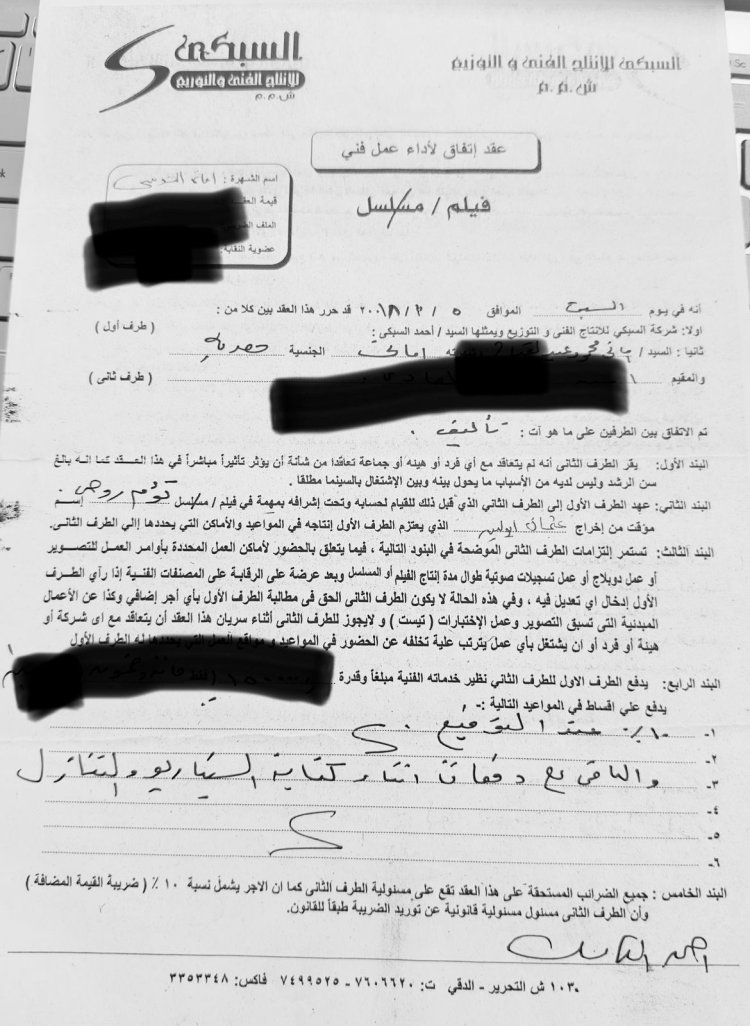 السبكى
للإنتاج الفنى والتوزيع
ش.م.م
السبكى للإنتاج الفنى و التوزيع
ش.م.م
عقد إتفاق لأداء عمل فني
اسم الشهرة :
قيمة العقد
الملف الضريبى
عضوية النقابة:
فيلم / مسلسل
أنه في يوم السبت الموافق ٥ / ٢٠٠٨ قد حرر هذا العقد بين كلا من :
اولا: شركة السبكي للانتاج الفنى و التوزيع ويمثلها السيد / أحمد السبكى : ( طرف أول )
ثانيا : السيد / امانى الجنسية مصريه
والمقيم ( طرف ثانى )
تم الاتفاق بين الطرفين على ما هو آت : تأليف .
البند الأول: يقر الطرف الثانى أنه لم يتعاقد مع أي فرد أو هيئه أو جماعة تعاقدا من شأنة أن يؤثر تأثيراً مباشراً في هذا العقد كما انه بالغ
سن الرشد وليس لديه من الأسباب ما يحول بينه وبين الإشتغال بالسينما مطلقا .
البند الثاني: عهد الطرف الأول إلى الطرف الثاني الذي قبل ذلك للقيام لحسابه وتحت إشرافه بمهمة في فيلم / مسلسل توأم روحى إسم
مؤقت من إخراج عثمان ابولبن الذي يعتزم الطرف الأول إنتاجه في المواعيد والأماكن التي يحددها إلي الطرف الثانى.
البند الثالث: تستمر إلتزامات الطرف الثانى الموضحة في البنود التالية ، فيما يتعلق بالحضور لأماكن العمل المحددة بأوامر العمل للتصوير
أو عمل دوبلاج أو عمل تسجيلات صوتية طوال مدة إنتاج الفيلم أو المسلسل وبعد عرضة على الرقابة على المصنفات الفنية إذا رآي الطرف
الأول إدخال اي تعديل فيه ، وفي هذه الحالة لا يكون الطرف الثانى الحق فى مطالبة الطرف الأول بأي أجر إضافي وكذا عن الأعمال
المبدئية التى تسبق التصوير وعمل الإختبارات ( تيست ) و لايجوز للطرف الثانى أثناء سريان هذا العقد أن يتعاقد مع اى شركة أو
هيئة أو فرد أو ان يشتغل بأي عمل يترتب علية تخلفه عن الحضور في المواعيد و مواقع العمل التي يحددها له الطرف الأول
البند الرابع: يدفع الطرف الاول للطرف الثاني نظير خدماته الفنية مبلغاً وقدرة
يدفع علي اقساط في المواعيد التالية :-
١- ١٠٪ عند التوقيع .
٢-
٣- والباقى مع دفعات اثناء كتابة السيناريو والتنازل
٤-
٥-
٦-
البند الخامس : جميع الضرائب المستحقة على هذا العقد تقع على مسئولية الطرف الثانى كما ان الاجر يشمل نسبة ١٠ ٪ ( ضريبة القيمة المضافة )
وأن الطرف الثانى مسئول مسئولية قانونية عن توريد الضريبة طبقاً للقانون.
١٠٣ ش التحرير - الدقي ت: ٧٦٠٦٦٢٠ - ٧٤٩٩٥٢٥ فاكس: ٣٣٥٣٣٤٨